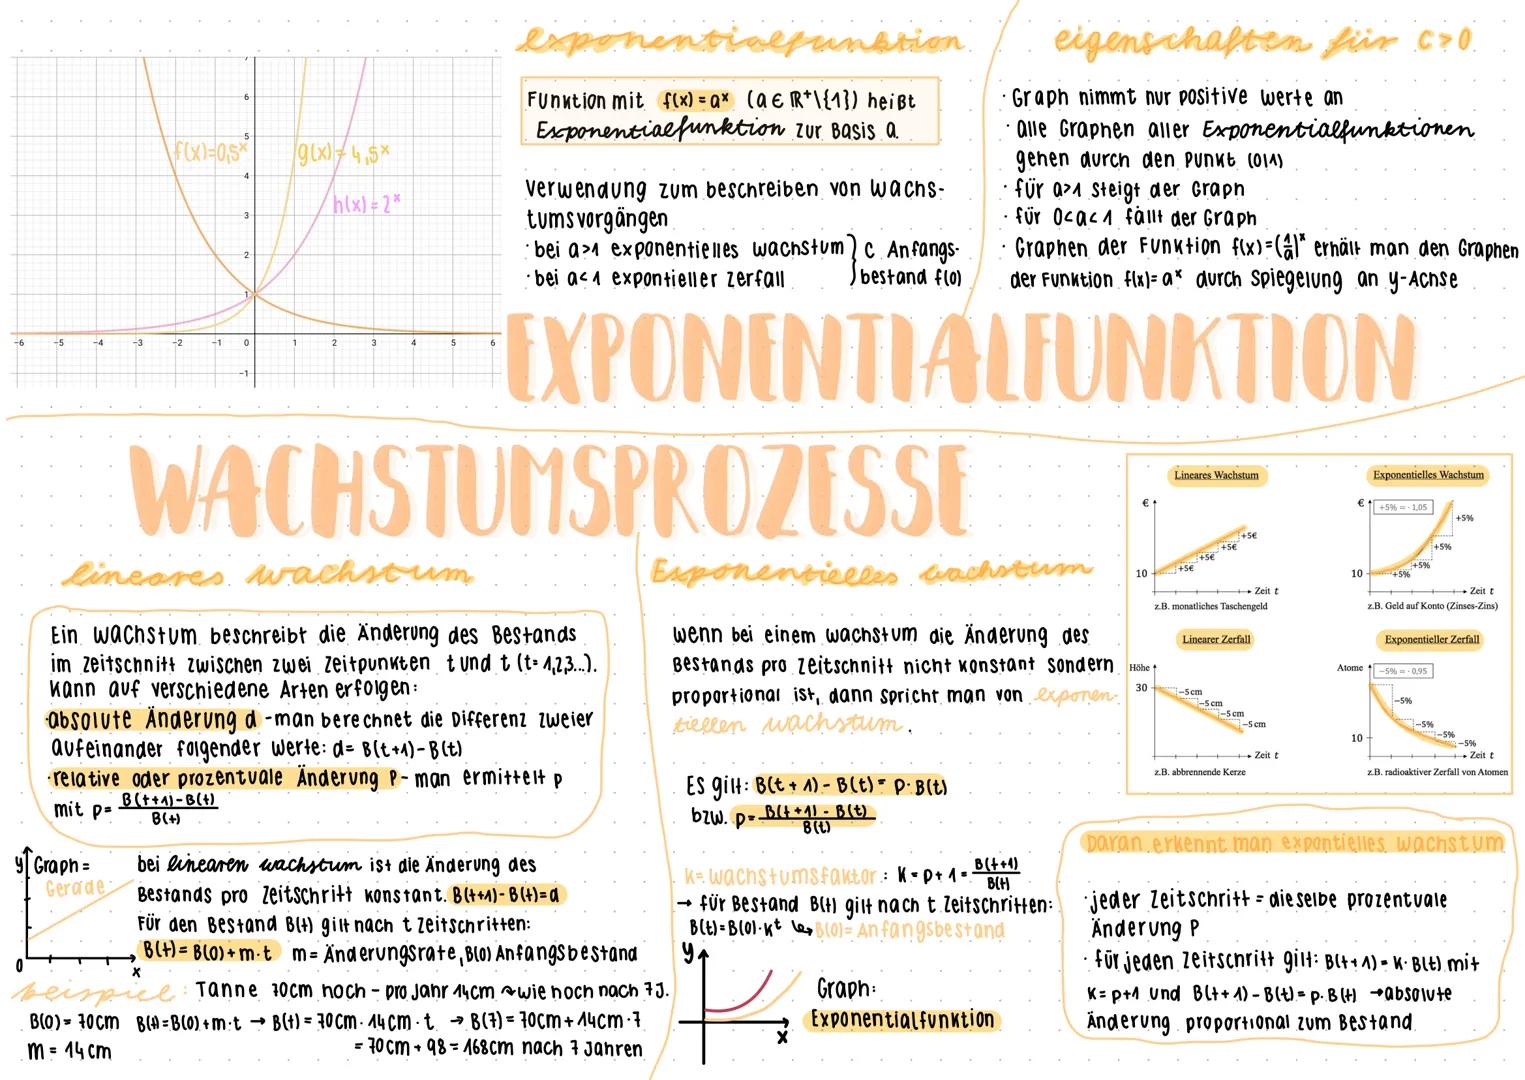 exponentialfunktion
Funktion mit f(x) = aˣ (a ∈ ℝ⁺\{1}) heißt
Exponentialfunktion zur Basis a.
Verwendung zum beschreiben von Wachs-
tumsvorgängen
· bei a>1 exponentielles wachstum } c Anfangs-
· bei a<1 expontieller zerfall } bestand f(0)
eigenschaften für c>0
· Graph nimmt nur positive werte an
· alle Graphen aller Exponentialfunktionen
gehen durch den Punkt (0|1)
· für a>1 steigt der Graph
· für 0<a<1 fällt der Graph
· Graphen der Funktion f(x)=(1/a)ˣ erhält man den Graphen
der Funktion f(x)= aˣ durch Spiegelung an y-Achse
f(x)=0,5ˣ
g(x)=4,5ˣ
h(x)=2ˣ
7
6
5
4
3
2
1
-6 -5 -4 -3 -2 -1 0 1 2 3 4 5 6
-1
EXPONENTIALFUNKTION
WACHSTUMSPROZESSE
lineares wachstum
Ein wachstum beschreibt die Änderung des Bestands
im Zeitschnitt zwischen zwei Zeitpunkten t und t (t=1,2,3...).
Kann auf verschiedene Arten erfolgen:
· absolute Änderung d - man berechnet die Differenz zweier
aufeinander folgender werte: d= B(t+1)-B(t)
· relative oder prozentuale Änderung P - man ermittelt p
mit p= B(t+1)-B(t) / B(t)
y Graph =
Gerade
0 x
bei linearen wachstum ist die Änderung des
Bestands pro Zeitschritt konstant. B(t+1)-B(t)=d
Für den Bestand B(t) gilt nach t Zeitschritten:
B(t)= B(0)+m·t m= Änderungsrate, B(0) Anfangsbestand
beispiel: Tanne 70cm hoch - pro Jahr 14cm ↷ wie hoch nach 7J.
B(0)= 70cm B(t)=B(0)+m·t → B(t)= 70cm·14cm·t → B(7)= 70cm+14cm·7
m = 14cm = 70cm + 98 = 168cm nach 7 Jahren
Exponentielles wachstum
wenn bei einem wachstum die Änderung des
Bestands pro Zeitschnitt nicht konstant sondern
proportional ist, dann spricht man von exponen-
tiellen wachstum.
Es gilt: B(t+1) - B(t) = p·B(t)
bzw. p= B(t+1) - B(t) / B(t)
K= wachstumsfaktor: K=p+1= B(t+1) / B(t)
→ für Bestand B(t) gilt nach t Zeitschritten:
B(t)=B(0)·Kᵗ ↳ B(0)= Anfangsbestand
y
x
Graph:
Exponentialfunktion
Lineares Wachstum
€
10
+5€
+5€
+5€
+5€
Zeit t
z.B. monatliches Taschengeld
Exponentielles Wachstum
€
+5% = · 1,05
10
+5%
+5%
+5%
+5%
Zeit t
z.B. Geld auf Konto (Zinses-Zins)
Linearer Zerfall
Höhe
30
-5 cm
-5 cm
-5 cm
-5 cm
Zeit t
z.B. abbrennende Kerze
Exponentieller Zerfall
Atome
-5% = · 0,95
10
-5%
-5%
-5%
-5%
Zeit t
z.B. radioaktiver Zerfall von Atomen
Daran erkennt man expontielles wachstum
· jeder Zeitschritt = dieselbe prozentuale
Änderung P
· für jeden Zeitschritt gilt: B(t+1)=K·B(t) mit
K= p+1 und B(t+1)-B(t)=p·B(t) → absolute
Änderung proportional zum Bestand